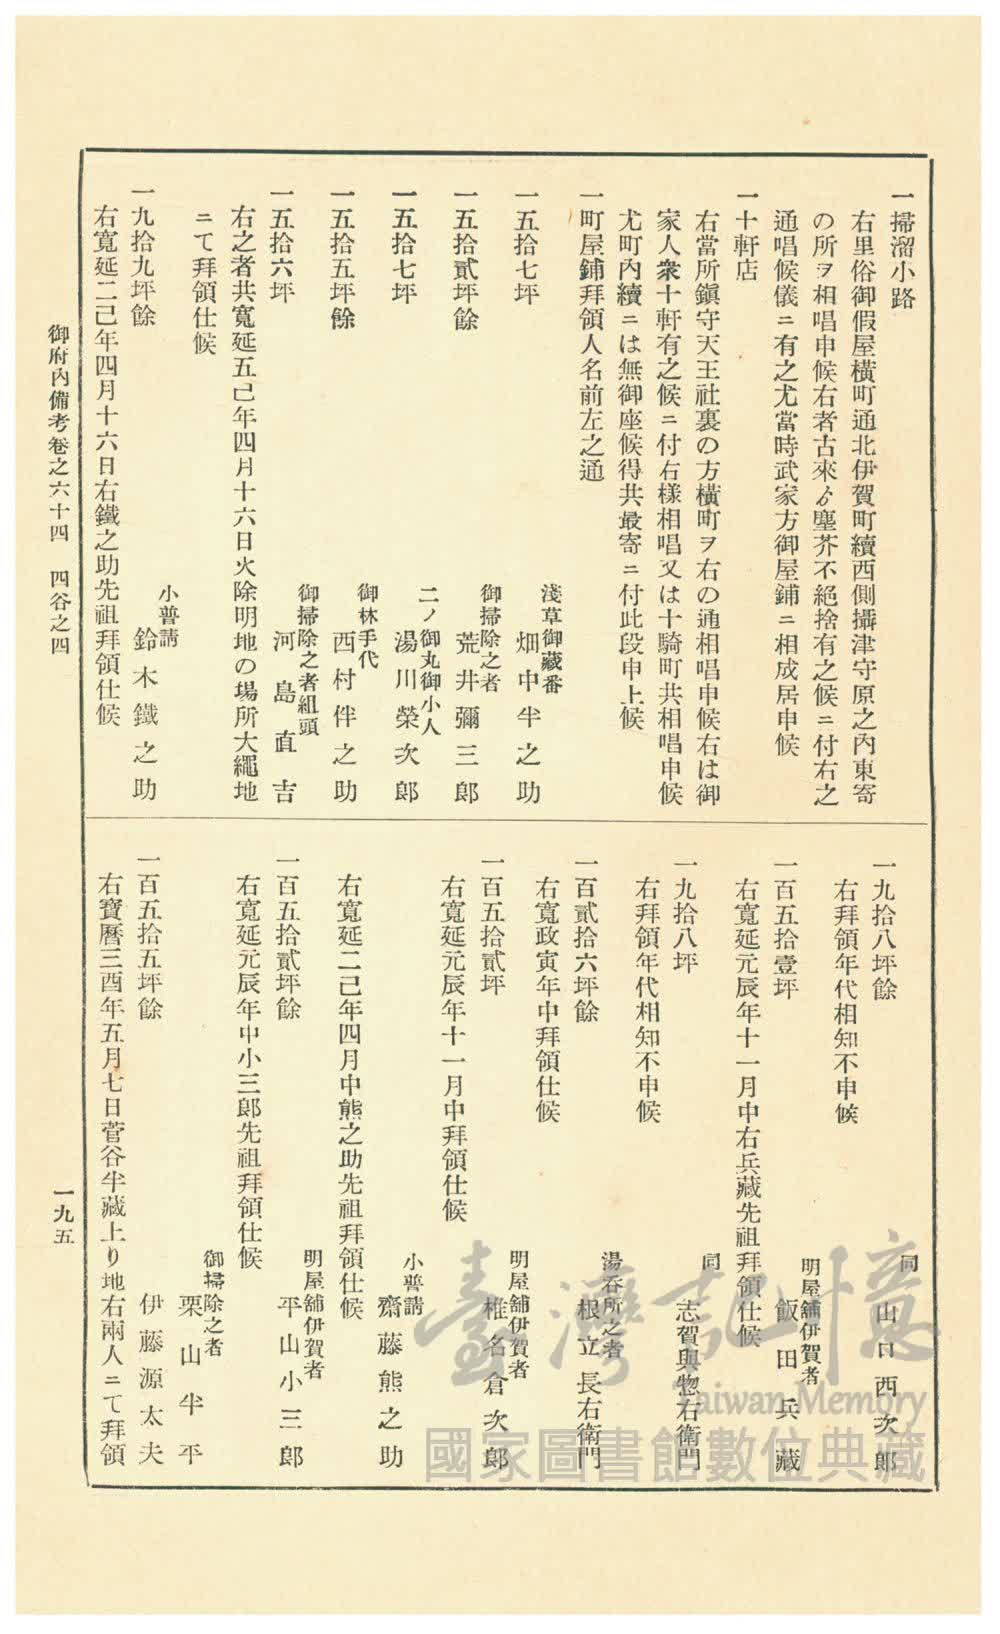 一掃溜小路
右里俗御假屋横町通北伊賀町續西側攝津守原之內東寄
の所ヲ相唱申候右者古來ゟ塵芥不絕捨有之候ニ付右之
通唱候儀ニ有之尤當時武家方御屋鋪ニ相成居申候
一十軒店
右當所鎭守天王社裏の方横町ヲ右の通相唱申候右は御
家人衆十軒有之候ニ付右樣相唱又は十騎町共相唱申候
尤町內續ニは無御座候得共最寄ニ付此段申上候
一町屋鋪拜領人名前左之通
淺草御藏番
一五拾七坪 畑中半之助
御掃除之者
一五拾貳坪餘 荒井彌三郎
二ノ御丸御小人
一五拾七坪 湯川榮次郎
御林手代
一五拾五坪餘 西村伴之助
御掃除之者組頭
一五拾六坪 河島直吉
右之者共寬延五己年四月十六日火除明地の場所大繩地
ニて拜領仕候
小普請
一九拾九坪餘 鈴木鐵之助
右寬延二己年四月十六日右鐵之助先祖拜領仕候
同
一九拾八坪餘 山口西次郎
右拜領年代相知不申候
明屋舖伊賀者
一百五拾壹坪 飯田兵藏
右寬延元辰年十一月中右兵藏先祖拜領仕候
同
一九拾八坪 志賀與惣右衛門
右拜領年代相知不申候
湯吞所之者
一百貳拾六坪餘 根立長右衛門
右寬政寅年中拜領仕候
明屋舖伊賀者
一百五拾貳坪 椎名倉次郎
右寬延元辰年十一月中拜領仕候
小普請
齋藤熊之助
右寬延二己年四月中熊之助先祖拜領仕候
明屋舖伊賀者
一百五拾貳坪餘 平山小三郎
右寬延元辰年中小三郎先祖拜領仕候
御掃除之者
栗山半平
一百五拾五坪餘 伊藤源太夫
右寶曆三酉年五月七日菅谷半藏上り地右兩人ニて拜領
御府內備考卷之六十四 四谷之四
一九五
臺灣記憶
Taiwan Memory
國家圖書館數位典藏